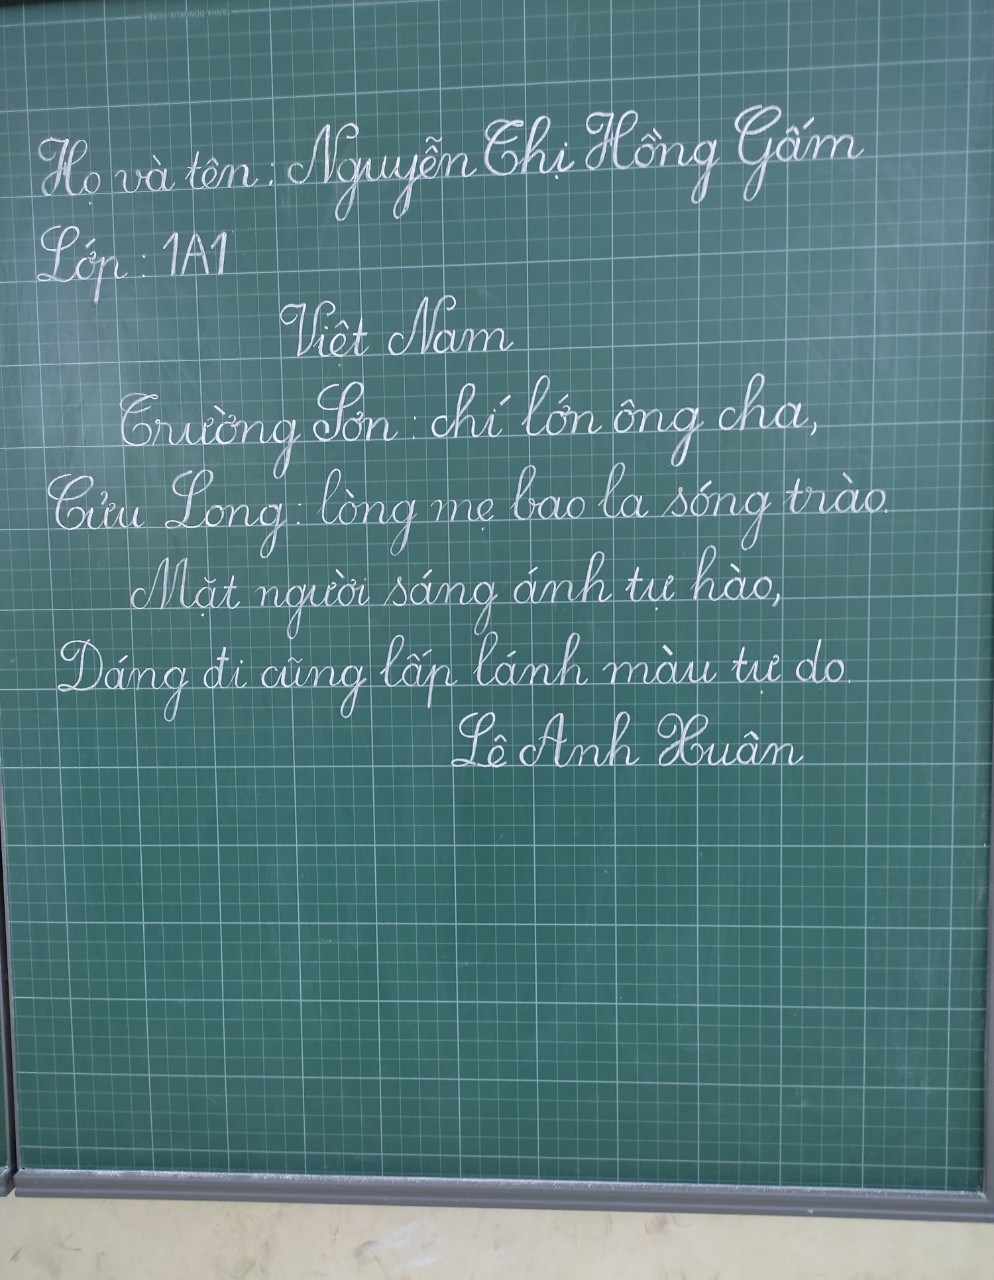 Họ và tên: Nguyễn Thị Hồng Gấm
Lớp: 1A1
Việt Nam
Trường Sơn: chí lớn ông cha,
Cửu Long: lòng mẹ bao la sóng trào.
Mặt người sáng ánh tự hào,
Dáng đi cũng lấp lánh màu tự do.
Lê Anh Xuân